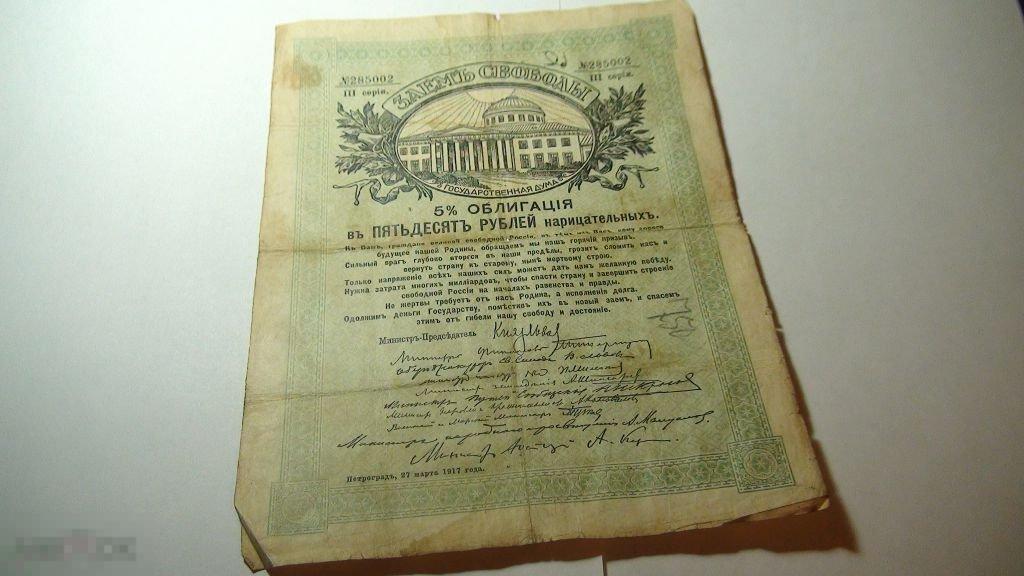 №285002 №285002
III серія. III серія.
ЗАЕМЪ СВОБОДЫ
ГОСУДАРСТВЕННАЯ ДУМА
5% ОБЛИГАЦІЯ
въ ПЯТЬДЕСЯТЪ РУБЛЕЙ нарицательныхъ.
Къ Вамъ, граждане великой свободной Россіи, къ тѣмъ изъ Васъ, кому дорого
будущее нашей Родины, обращаемъ мы нашъ горячій призывъ.
Сильный врагъ глубоко вторгся въ наши предѣлы, грозитъ сломить насъ и
вернуть страну къ старому, нынѣ мертвому строю.
Только напряженіе всѣхъ нашихъ силъ можетъ дать намъ желанную побѣду.
Нужна затрата многихъ милліардовъ, чтобы спасти страну и завершить строеніе
свободной Россіи на началахъ равенства и правды.
Не жертвы требуетъ отъ насъ Родина, а исполненія долга.
Одолжимъ деньги Государству, помѣстивъ ихъ въ новый заемъ, и спасемъ
этимъ отъ гибели нашу свободу и достояніе.
Министръ-Предсѣдатель Кн. Львов
Министръ Финансовъ
Оберъ-прокуроръ Св. Синода В. Львовъ
Министръ земледѣлія А. Шингаревъ
Министръ Путей Сообщенія Н. Некрасовъ
Военный и Морской Министръ
Министръ народнаго просвѣщенія А. Мануйловъ.
Министръ Юстиціи А. Керенскій.
Петроградъ, 27 марта 1917 года.